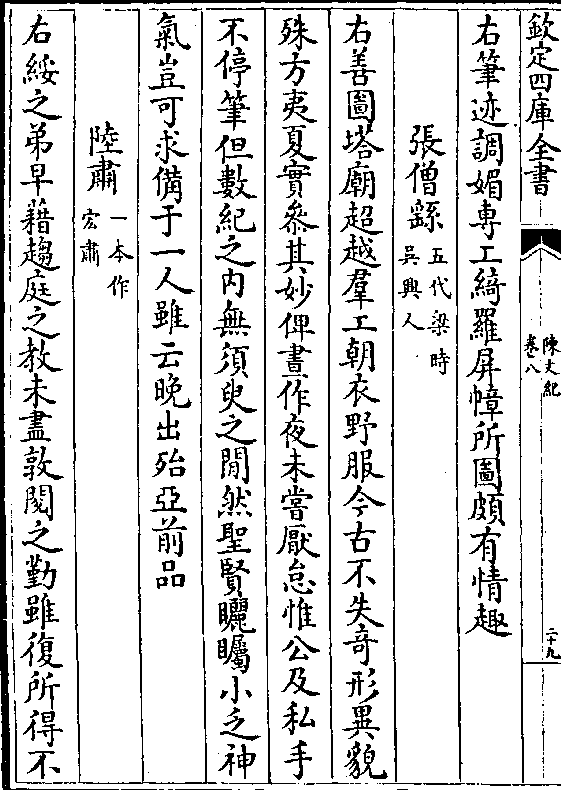 欽定四庫全書
陳文紀
卷八
二十九
右筆迹調媚專工綺羅屏幛所圖頗有情趣
張僧繇
五代梁時
吳興人
右善圖塔廟超越羣工朝衣野服今古不失奇形異貌
殊方夷夏實參其妙俾晝作夜未嘗厭怠惟公及私手
不停筆但數紀之內無須臾之閒然聖賢矖矚小乏神
氣豈可求備于一人雖云晚出殆亞前品
陸肅
一本作
宏肅
右綏之弟早藉趨庭之教未盡敦閱之勤雖復所得不